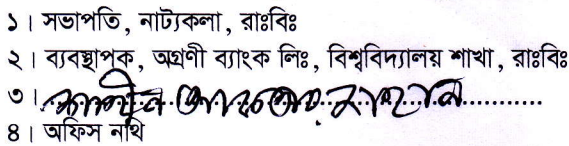 ১। সভাপতি, নাট্যকলা, রাঃবিঃ
২। ব্যবস্থাপক, অগ্রণী ব্যাংক লিঃ, বিশ্ববিদ্যালয় শাখা, রাঃবিঃ
৩।
৪। অফিস নথি